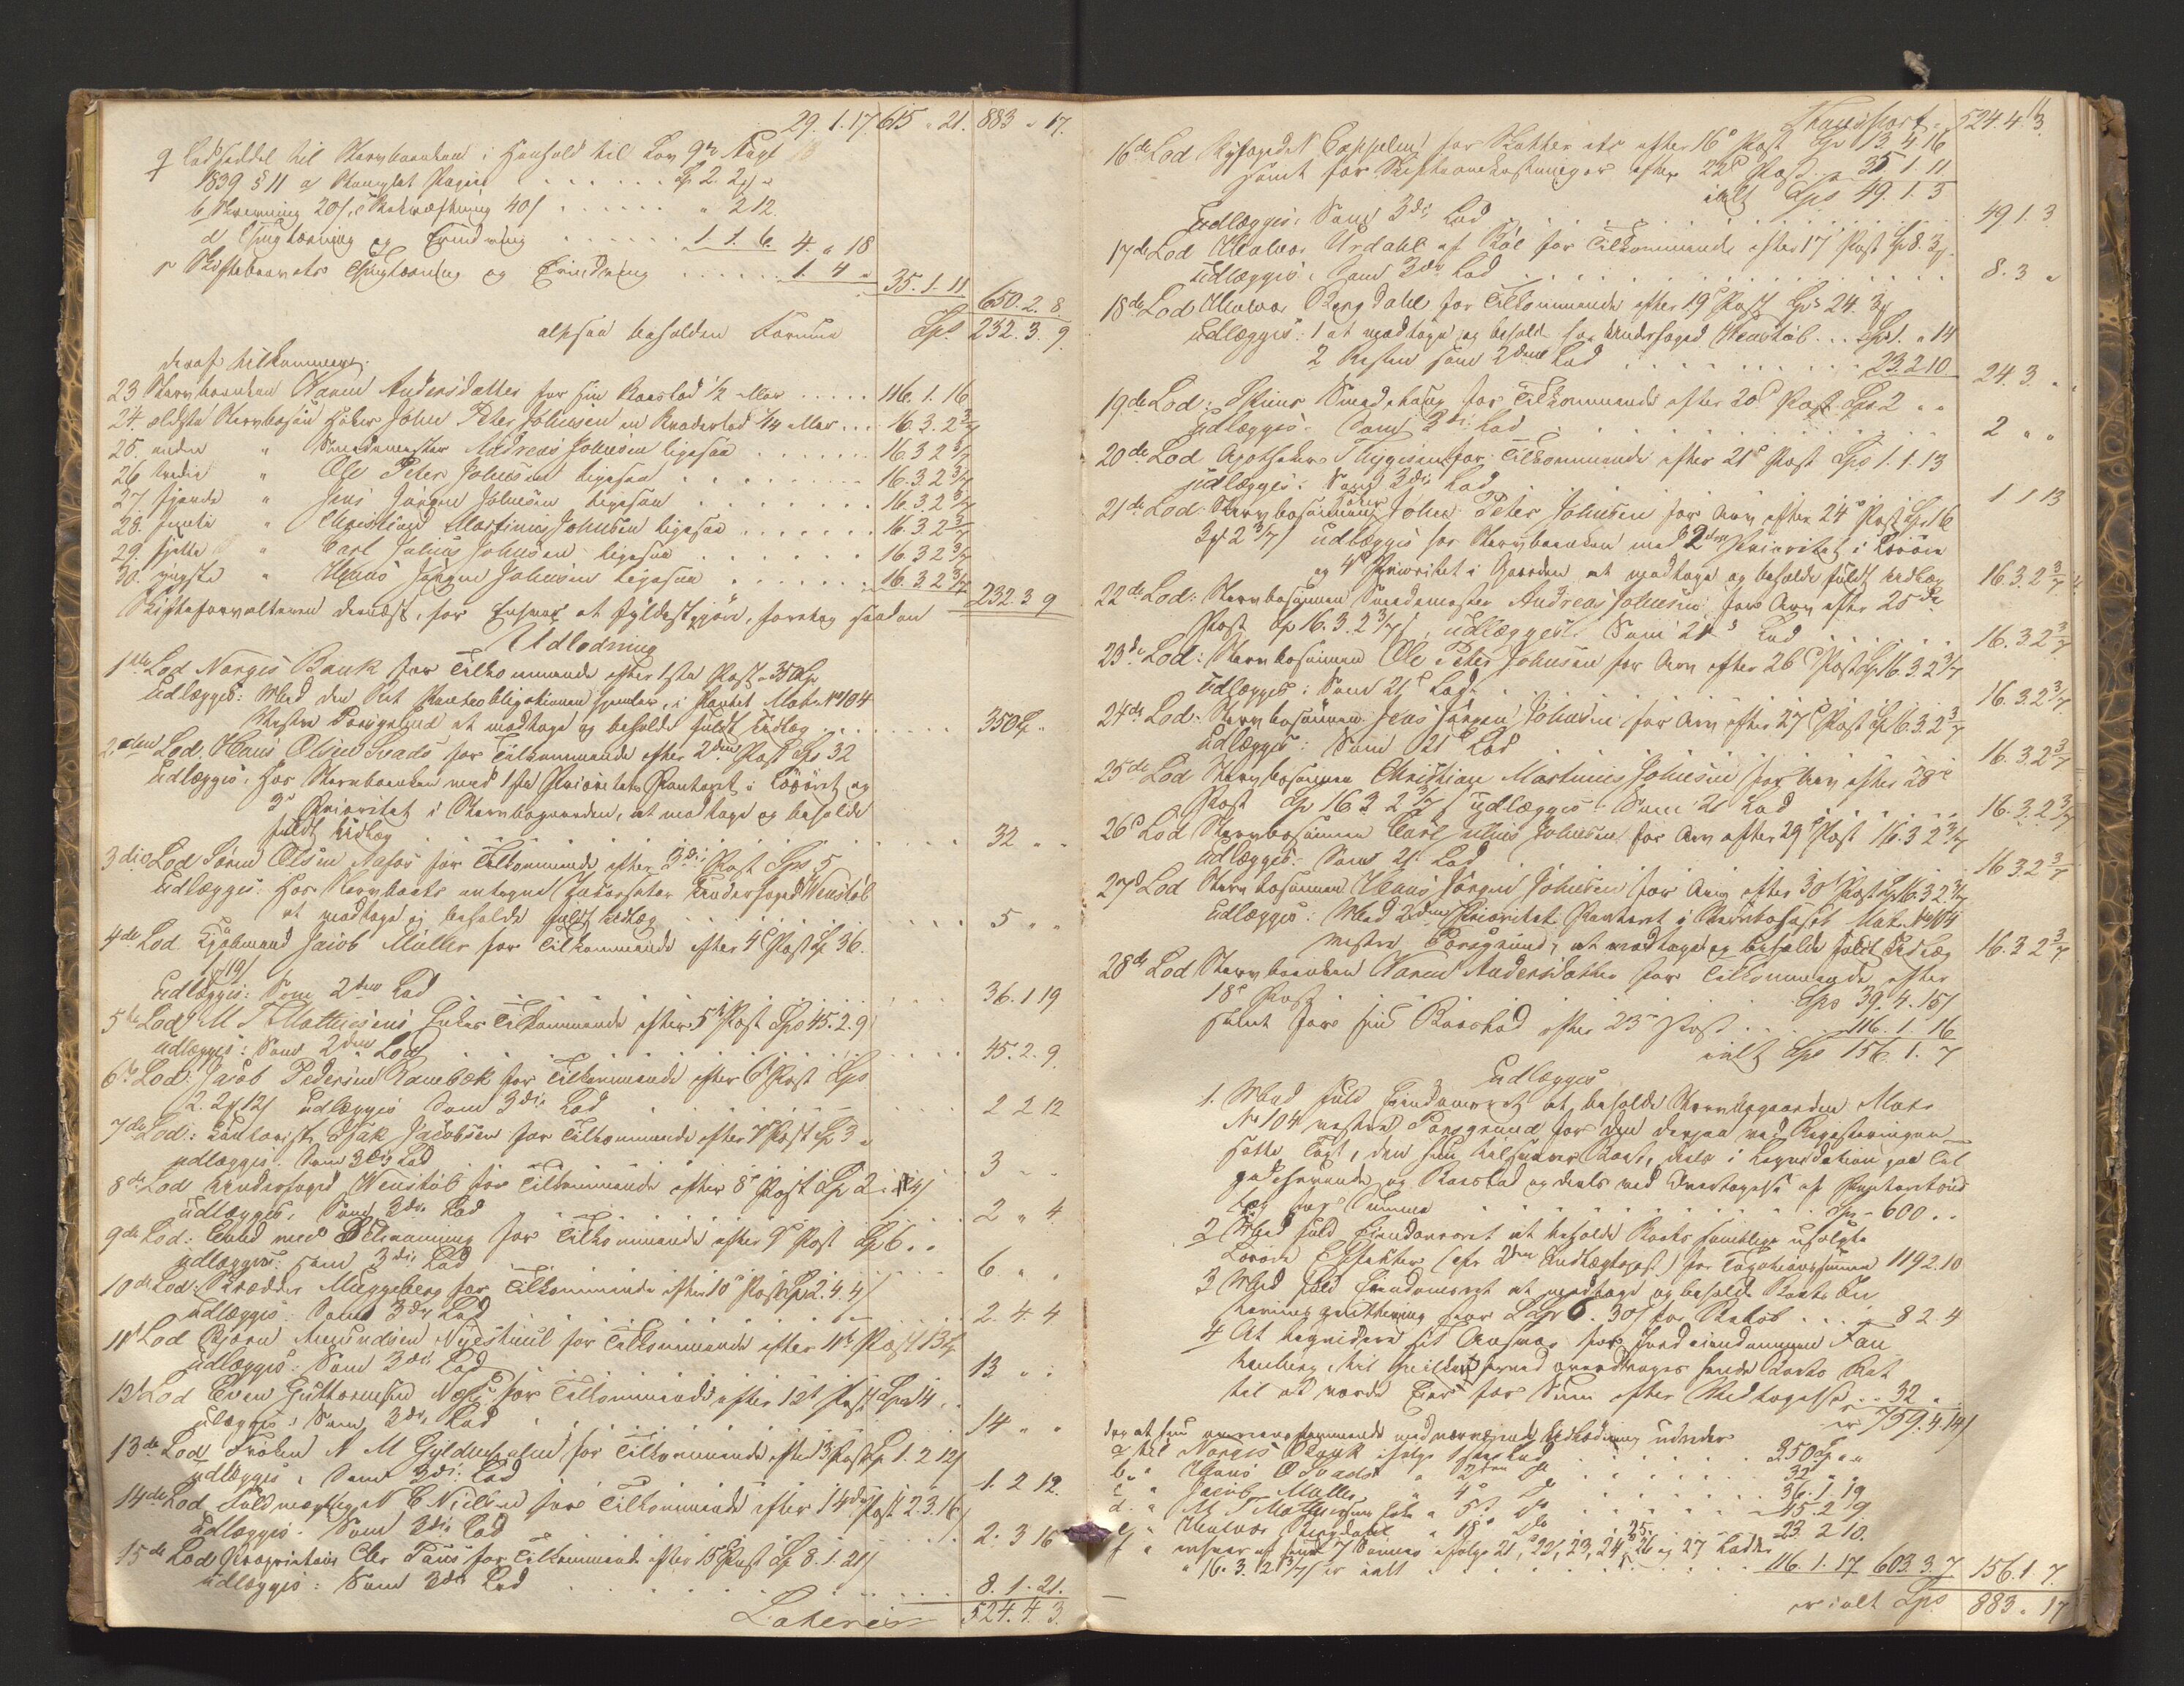 29. 1. 17 615 " 21. 883 " 17.
q Lodseddel til Stervboenken i Henhold til Lov 9de Augt
1839 § 11 a Stemplet Papiir . . . Sp 2. 2 "
b Skrivning 20 s, c Bekræftning 40 s . . . " 2 12.
d Chartering og Forsending . . . 1. 1. 6. 4. " 18
r Skifteboarets . . . og . . . 1. 4 " 35. 1. 11 650. 2. 8
altsaa beholden Formue Sps. 232. 3. 9.
deraf tilkommer:
23 Stervboenken Karen Andersdatter for sin Boeslod 1/2 eller . . . 116. 1. 16
24. ældste Stervbosøn Høker John Peter Johnsen en Broderlod 1/14 eller . . . 16. 3. 2 3/7
25. anden " Smedemester Andreas Johnsen ligesaa . . . 16 3 2 3/7
26 tredie " Ole Peter Johnsen ligesaa . . . 16. 3. 2 3/7
27 fjerde " Jens Jørgen Johnsen ligesaa . . . 16. 3. 2 3/7
28. femte " Christian Martinius Johnsen ligesaa . . . 16. 3. 2 3/7
29. sjette " Carl Julius Johnsen ligesaa . . . 16 3 2 3/7
30. yngste " Hans Jørgen Johnsen ligesaa . . . 16. 3. 2 3/7 232. 3 9
Skifteforvalteren dernæst, for Enhver at fyldestgjøre, foretog saadan
Udlodning
1ste Lod Norges Bank for Tilkommende efter 1ste Post - 350 Sp
Udlægges: Med den sit Panteobligationen hjemler, i Pantet Matr. No 104
Vestre Porsgrund at modtage og beholde fuldt Udlæg . . . 350 Sp "
2den Lod, Hans Olsen Svads for Tilkommende efter 2den Post Sps 32
Udlægges: Hos Stervboenken med 1ste Prioritets Panteret i Løsøret og
3e Prioritet i Stervbogaarden, at modtage og beholde
fuldt Udlæg . . . 32 " "
3die Lod Søren Olsen Aafos for Tilkommende efter 3die Post Sps 5
Udlægges: Hos Stervboets antagne Incassator Lensmand Wenstøb
at modtage og beholde fuldt Udlæg . . . 5 " "
4de Lod Kjøbmand Jacob Müller for Tilkommende efter 4e Post Sp 36.
1 19
Udlægges: Som 2den Lod . . . 36. 1 19
5te Lod M T Mathiesens Enkes Tilkommende efter 5te Post Sps 45. 2. 9
Udlægges: Som 2den Lod . . . 45. 2. 9.
6te Lod: Jacob Pedersen Rambæk for Tilkommende efter 6te Post Sps
2. 2 12 Udlægges Som 3die Lod . . . 2 2 12
7de Lod: . . . Isak Jacobsen for Tilkommende efter 7e Post Sp 3 "
Udlægges. Som 3die Lod . . . 3 " "
8de Lod Lensmand Wenstøb for Tilkommende efter 8e Post Sp 2 " 4
Udlægges, Som 3die Lod . . . 2 " 4
9de Lod: . . . for Tilkommende efter 9e Post Sp 6 " "
Udlægges: som 3die Lod . . . 6 " "
10de Lod: Skræder Müggeberg for Tilkommende efter 10e Post Sp 2. 4. 4
Udlægges Som 3die Lod . . . 2. 4. 4
11te Lod Bjørn Amundsen Nyestuul for Tilkommende efter 11te Post 13 Sp
Udlægges: Som 3die Lod . . . 13 " "
12te Lod Even Guttormsen Næss for Tilkommende efter 12te Post Sps 14 "
Udlægges: Som 3die Lod . . . 14 " "
13de Lod Frøken N M Gyldenpalm for Tilkommende efter 13 Post Sp 1. 2 12
Udlægges, Som 3die Lod . . . 1. 2 12.
14de Lod Fuldmægtig N C Nielsen for Tilkommende efter 14de Post 2. 3. 16
Udlægges. Som 3die Lod . . . 2. 3 16
15de Lod Proprietair Cler Paus for Tilkommende efter 15 Post Sp 8. 1. 21
Udlægges: Som 3die Lod . . . 8. 1. 21.
Lateris 524. 4. 3.
Transport " 524. 4. 3.
16de Lod Byfoged N Cappelen for Skatter etc efter 16e Post Sp 13 4 16
samt for Skifteomkostninger efter 22e Post " 35. 1. 11
ialt Sps 49. 1. 3
Udlægges: Som 3die Lod . . . 49 1. 3
17de Lod Halvor Urdahl af Bøe for Tilkommende efter 17 Post Sp 8. 3
Udlægges. Som 3die Lod . . . 8. 3 "
18de Lod Halvor Bergdahl for Tilkommende efter 19e Post Sps 24. 3
Udlægges: 1 at modtage og beholde hos Lensmand Wenstøb . . . Sps 1. " 14
2 Resten som 2den Lod . . . 23. 2 10 24. 3. "
19de Lod: . . . Smedshaug for Tilkommende efter 20e Post Sps 2 " "
Udlægges. Som 3die Lod . . . 2 " "
20de Lod Apotheker Thygesen for Tilkommende efter 21e Post Sps 1. 1. 13
Udlægges. Som 3die Lod . . . 1 1 13
21de Lod Stervbosønnen Høker John Peter Johnsen for Arv efter 24e Post Sp 16
3 2 3/7 Udlægges hos Stervboenken med 2den Prioritet i Løsøre
og 4e Prioritet i Gaarden at modtage og beholde fuldt Udlæg 16. 3. 2 3/7
22de Lod: Stervbosønnen Smedemester Andreas Johnsen for Arv efter 25de
Post Sp 16. 3. 2 3/7, Udlægges: Som 21e Lod . . . 16. 3. 2 3/7
23de Lod: Stervbosønnen Ole Peter Johnsen for Arv efter 26e Post Sp 16. 3. 2 3/7
Udlægges: Som 21e Lod . . . 16. 3. 2 3/7
24de Lod: Stervbosønnen Jens Jørgen Johnsen for Arv efter 27e Post Sp 16. 3. 2 3/7
Udlægges: Som 21e Lod . . . 16. 3. 2 3/7
25de Lod Stervbosønnen Christian Martinius Johnsen for Arv efter 28e
Post Sp 16 3 2 3/7 Udlægges: Som 21 Lod . . . 16. 3. 2 3/7
26e Lod Stervbosønnen Carl Julius Johnsen for Arv efter 29e Post 16. 3 2 3/7
Udlægges: Som 21 Lod . . . 16 3. 2 3/7
27e Lod Stervbosønnen Hans Jørgen Johnsen for Arv efter 30e Post Sp 16. 3 2 3/7
Udlægges: Med 2den Prioritets Panteret i Stervbohuset Matr. No 104
Vestre Porsgrund, at modtage og beholde fuldt Udlæg 16. 3 2 3/7
28de Lod Stervboenken Karen Andersdatter for Tilkommende efter
18e Post . . . Sps 39. 4. 15
samt for sin Boeslod efter 23e Post . . . 116. 1. 16
ialt Sps 156. 1. 7
Udlægges
1. Med fuld Eiendomsret at beholde Stervbogaarden Matr
No 104 vestre Porsgrund for den derpaa ved Registeringen
satte Taxt, den hun tilsvarer Boet, deels i Liqvidation paa Til
godehavende og Boeslod og deels ved Overtagelse af Panteretsud
læg hos Summa . . . Sp - 600 " "
2 Med fuld Eiendomsret at beholde Boets samtlige usolgte
Løsøre Effekter (efr 2den Indtægtspost) for Taxationssummen 119 2. 10
3 Med fuld Eiendomsret at modtage og beholde Boets . . .
. . . hos Lars G. 30 for . . . 8 2. 4
4 At liqvidere sit Ansvar for Jordeiendommen Fau
. . . til hvilken hermed overdrages hende Boets Ret
til at vorde Eier for Sum efter Vedtagelse . . . 32 "
er 759. 4. 14
dog at hun . . . med nærværende Udlodning udreder
a til Norges Bank ifølge 1ste Lod . . . 350 Sp " "
b " Hans O Svads " 2den do . . . 32 " "
c " Jacob Müller " 4e do . . . 36. 1. 19
d. " M T Mathiesens Enke " 5e do . . . 45. 2. 9
e " Halvor Bergdahl " 18e do . . . 23. 2 10.
f " enhver af sine 7 Sønner ifølge 21, 22, 23, 24, 25, 26 og 27 Lodder
" 16. 3. 2 3/7 er ialt . . . 116. 1. 17 603. 3. 7 156. 1. 7.
er ialt Sps. 883 " 17